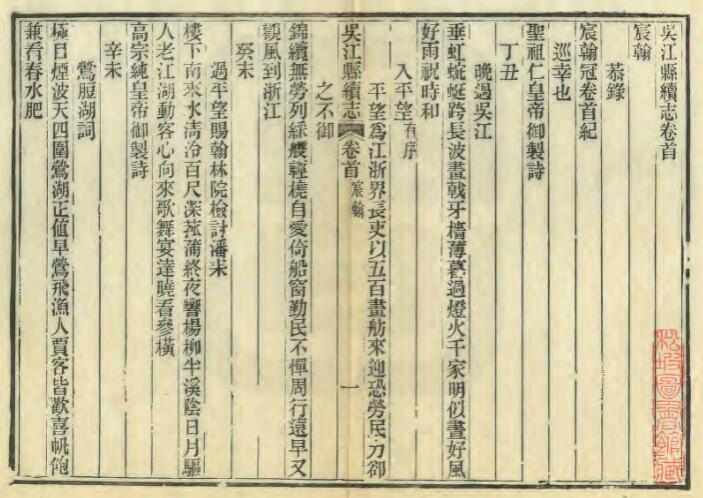 吳江縣續志卷首
宸翰
恭錄
宸翰冠卷首紀
巡幸也
聖祖仁皇帝御製詩
丁丑
晚過吳江
垂虹蜿蜒跨長波畫戟牙檣薄暮過燈火千家明似晝好風
好雨祝時和
入平望有序
平望爲江浙界長吏以五百畫舫來迎恐勞民力卻
吳江縣續志 卷首 宸翰 一
之不御
錦纜無勞列綵艭輕橈自愛倚船窗勤民不憚周行遠早又
觀風到浙江
癸未
過平望賜翰林院檢討潘耒
樓下南來水清泠百尺深菰蒲終夜響楊柳半溪陰日月驅
人老江湖動客心向來歌舞宴達曉看參橫
高宗純皇帝御製詩
辛未
鶯脰湖詞
極目煙波天四圍鶯湖正値早鶯飛漁人賈客皆歡喜帆飽
兼看春水肥
圖書館藏